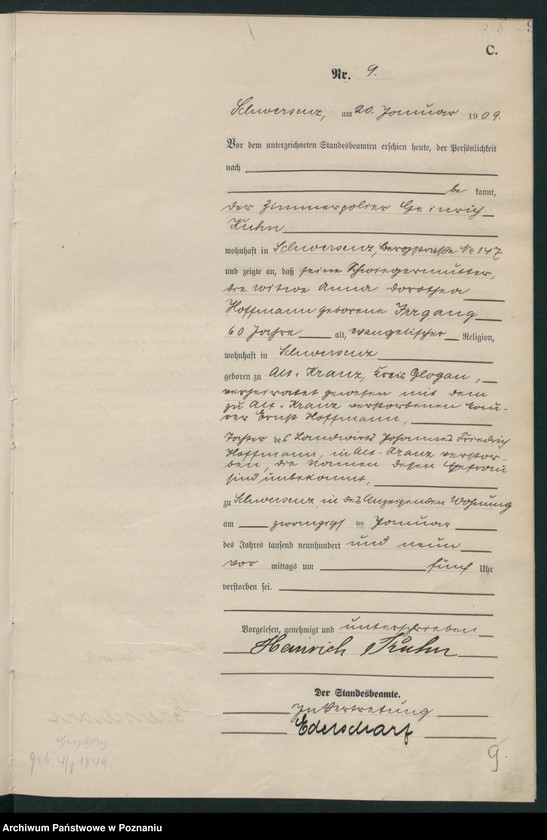 C.
Nr. 9.
Schwersenz, am 20. Januar 1909.
Vor dem unterzeichneten Standesbeamten erschien heute, der Persönlichkeit
nach
be kannt,
der Zimmerpolier Heinrich
Kuhn
wohnhaft in Schwersenz, Bergstraße No 147
und zeigte an, daß seine Schwiegermutter,
die Witwe Anna Dorothea
Hoffmann geborene Irrgang
60 Jahre alt, evangelischer Religion,
wohnhaft in Schwersenz
geboren zu Alt-Kranz, Kreis Glogau,
verheiratet gewesen mit dem
zu Alt-Kranz verstorbenen
Ernst Hoffmann,
Tochter des Landwirts Johannes Friedrich
Hoffmann, in Alt-Kranz verstor-
ben, die Namen dessen Ehefrau
sind unbekannt,
zu Schwersenz, in des Anzeigenden Wohnung
am zwanzigst en Januar
des Jahres tausend neunhundert und neun
vor mittags um fünf Uhr
verstorben sei.
Vorgelesen, genehmigt und unterschrieben
Heinrich Kuhn
Der Standesbeamte.
In Vertretung
Ederscharf
9.
Archiwum Państwowe w Poznaniu